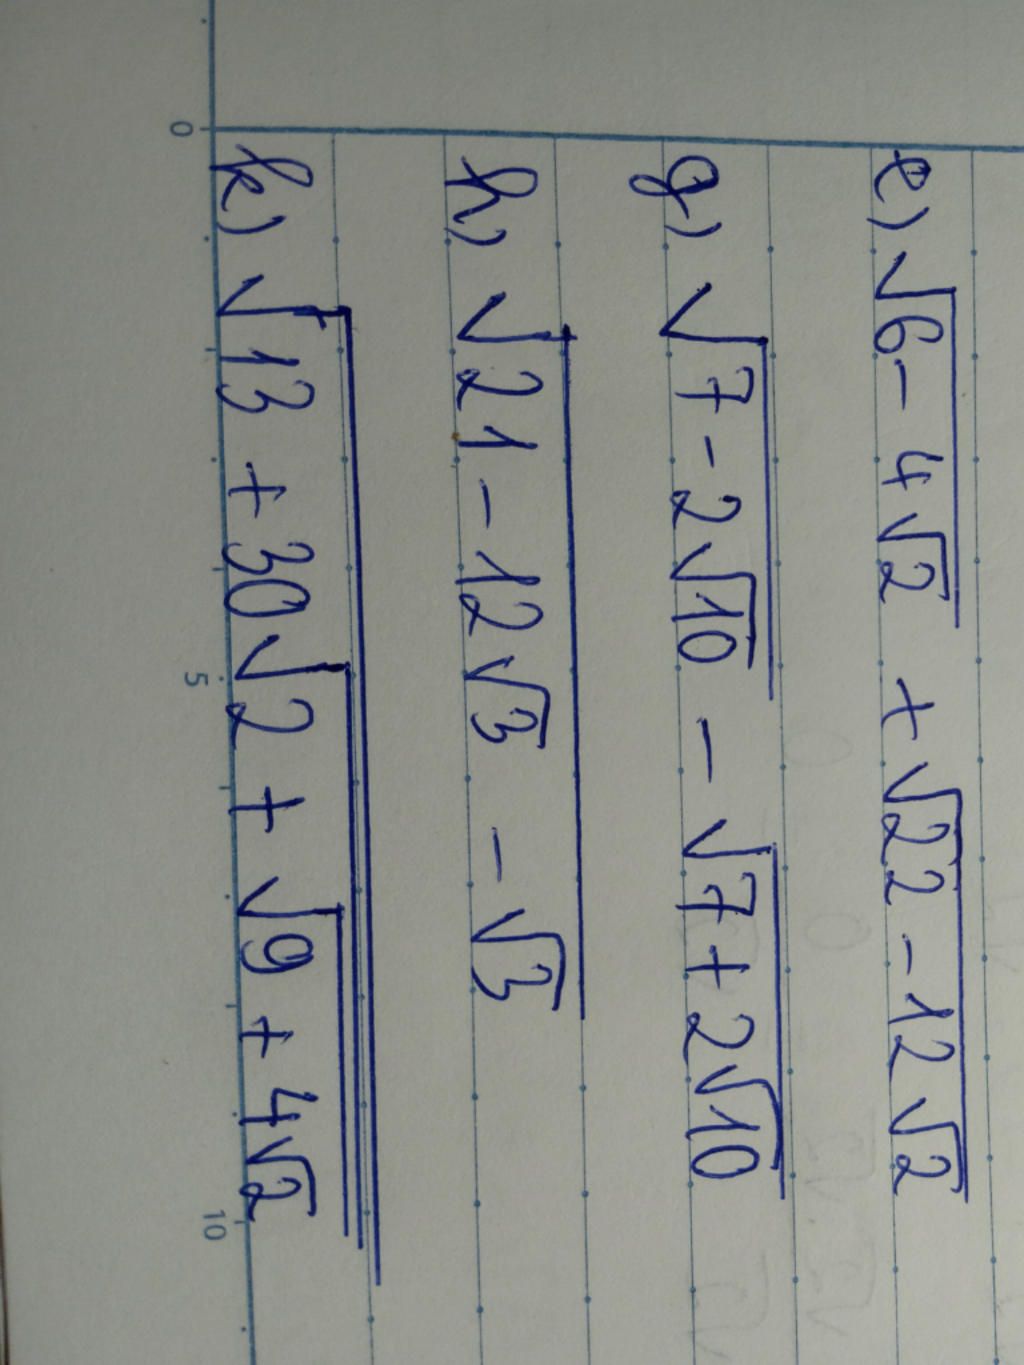 e) √(6 - 4√2) + √(22 - 12√2)
g) √(7 - 2√10) - √(7 + 2√10)
h) √(21 - 12√3 - √3)
k) √(13 + 30√(2 + √(9 + 4√2)))
0 5 10